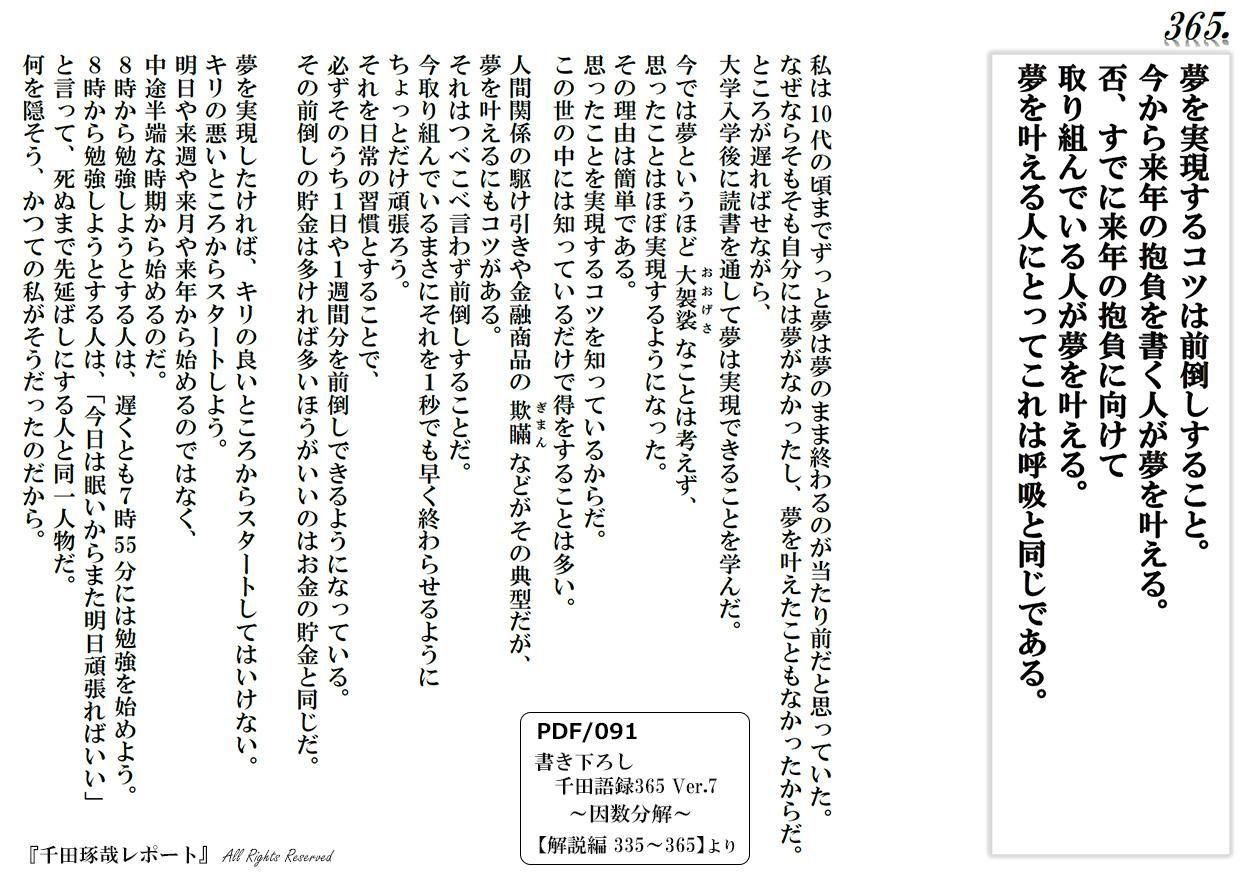 365.
夢を実現するコツは前倒しすること。
今から来年の抱負を書く人が夢を叶える。
否、すでに来年の抱負に向けて
取り組んでいる人が夢を叶える。
夢を叶える人にとってこれは呼吸と同じである。
私は10代の頃までずっと夢は夢のまま終わるのが当たり前だと思っていた。
なぜならそもそも自分には夢がなかったし、夢を叶えたこともなかったからだ。
ところが遅ればせながら、
大学入学後に読書を通して夢は実現できることを学んだ。
今では夢というほど大袈裟なことは考えず、
おおげさ
思ったことはほぼ実現するようになった。
その理由は簡単である。
思ったことを実現するコツを知っているからだ。
この世の中には知っているだけで得をすることは多い。
人間関係の駆け引きや金融商品の欺瞞などがその典型だが、
ぎまん
夢を叶えるにもコツがある。
それはつべこべ言わず前倒しすることだ。
今取り組んでいるまさにそれを1秒でも早く終わらせるように
ちょっとだけ頑張ろう。
それを日常の習慣とすることで、
必ずそのうち1日や1週間分を前倒しできるようになっている。
その前倒しの貯金は多ければ多いほうがいいのはお金の貯金と同じだ。
夢を実現したければ、キリの良いところからスタートしてはいけない。
キリの悪いところからスタートしよう。
明日や来週や来月や来年から始めるのではなく、
中途半端な時期から始めるのだ。
8時から勉強しようとする人は、遅くとも7時55分には勉強を始めよう。
8時から勉強しようとする人は、「今日は眠いからまた明日頑張ればいい」
と言って、死ぬまで先延ばしにする人と同一人物だ。
何を隠そう、かつての私がそうだったのだから。
PDF/091
書き下ろし
千田語録365 Ver.7
～因数分解～
【解説編 335～365】より
『千田琢哉レポート』 All Rights Reserved